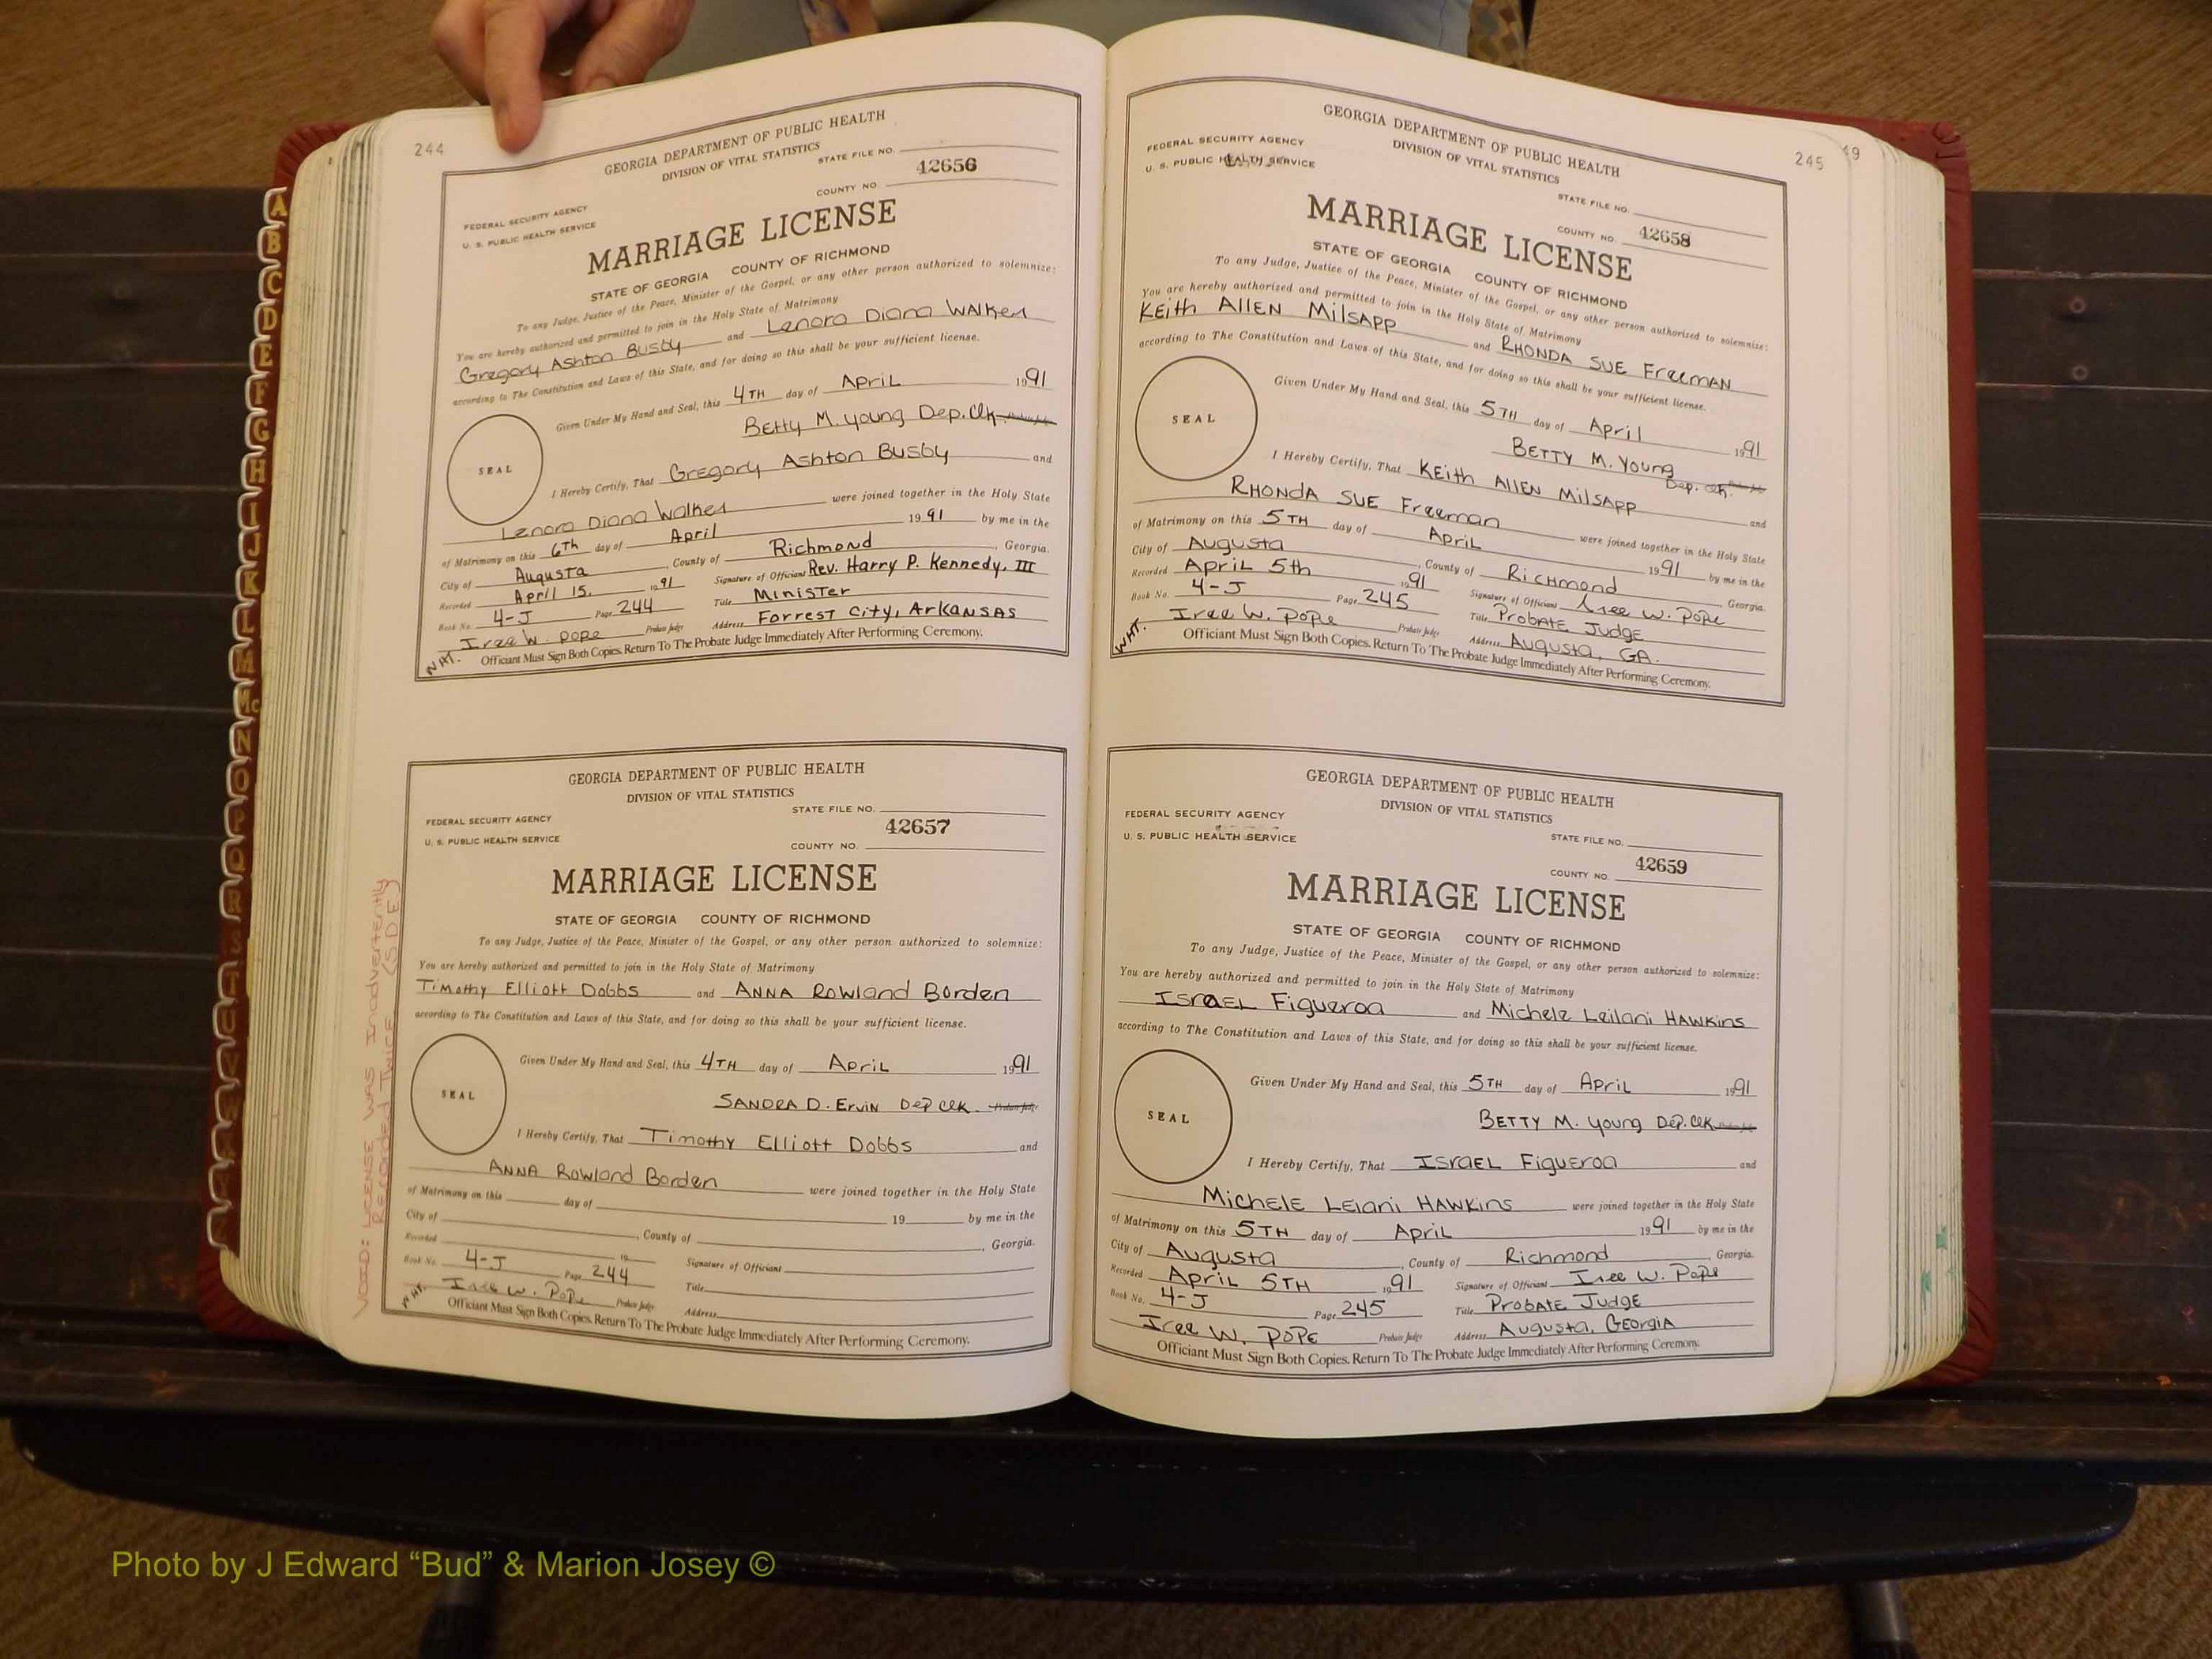 244
GEORGIA DEPARTMENT OF PUBLIC HEALTH
DIVISION OF VITAL STATISTICS
STATE FILE NO.
42656
COUNTY NO.
FEDERAL SECURITY AGENCY
U. S. PUBLIC HEALTH SERVICE
MARRIAGE LICENSE
STATE OF GEORGIA COUNTY OF RICHMOND
To any Judge, Justice of the Peace, Minister of the Gospel, or any other person authorized to solemnize:
You are hereby authorized and permitted to join in the Holy State of Matrimony
Gregory Ashton Busby and Lenora Diana Walker
according to The Constitution and Laws of this State, and for doing so this shall be your sufficient license.
SEAL
Given Under My Hand and Seal, this 4TH day of April 1991
Betty M. Young Dep. Clk. Probate Judge
I Hereby Certify, That Gregory Ashton Busby and
Lenora Diana Walker were joined together in the Holy State
of Matrimony on this 6Th day of April 19 91 by me in the
City of Augusta, County of Richmond, Georgia.
Recorded April 15, 1991 Signature of Officiant Rev. Harry P. Kennedy, III
Book No. 4-J Page 244 Title Minister
Iree W. Pope Probate Judge Address Forrest City, Arkansas
WHT. Officiant Must Sign Both Copies. Return To The Probate Judge Immediately After Performing Ceremony.
GEORGIA DEPARTMENT OF PUBLIC HEALTH
DIVISION OF VITAL STATISTICS
STATE FILE NO.
42657
COUNTY NO.
FEDERAL SECURITY AGENCY
U. S. PUBLIC HEALTH SERVICE
MARRIAGE LICENSE
STATE OF GEORGIA COUNTY OF RICHMOND
To any Judge, Justice of the Peace, Minister of the Gospel, or any other person authorized to solemnize:
You are hereby authorized and permitted to join in the Holy State of Matrimony
Timothy Elliott Dobbs and Anna Rowland Borden
according to The Constitution and Laws of this State, and for doing so this shall be your sufficient license.
SEAL
Given Under My Hand and Seal, this 4TH day of April 1991
Sandra D. Ervin Dep Clk. Probate Judge
I Hereby Certify, That Timothy Elliott Dobbs and
Anna Rowland Borden were joined together in the Holy State
of Matrimony on this day of 19 by me in the
City of , County of , Georgia.
Recorded 19 Signature of Officiant
Book No. 4-J Page 244 Title
Iree W. Pope Probate Judge Address
WHT. Officiant Must Sign Both Copies. Return To The Probate Judge Immediately After Performing Ceremony.
VOID: LICENSE WAS Inadvertently
Recorded Twice (SDE)
245
49
GEORGIA DEPARTMENT OF PUBLIC HEALTH
DIVISION OF VITAL STATISTICS
FEDERAL SECURITY AGENCY
U. S. PUBLIC HEALTH SERVICE
STATE FILE NO.
COUNTY NO. 42658
MARRIAGE LICENSE
STATE OF GEORGIA COUNTY OF RICHMOND
To any Judge, Justice of the Peace, Minister of the Gospel, or any other person authorized to solemnize:
You are hereby authorized and permitted to join in the Holy State of Matrimony
Keith Allen Milsapp and Rhonda Sue Freeman
according to The Constitution and Laws of this State, and for doing so this shall be your sufficient license.
SEAL
Given Under My Hand and Seal, this 5TH day of April 1991
Betty M. Young
Dep. Clk. Probate Judge
I Hereby Certify, That Keith Allen Milsapp and
Rhonda Sue Freeman were joined together in the Holy State
of Matrimony on this 5TH day of April 1991 by me in the
City of Augusta, County of Richmond, Georgia.
Recorded April 5th 1991 Signature of Officiant Iree W. Pope
Book No. 4-J Page 245 Title Probate Judge
Iree W. Pope Probate Judge Address Augusta, GA.
WHT. Officiant Must Sign Both Copies. Return To The Probate Judge Immediately After Performing Ceremony.
GEORGIA DEPARTMENT OF PUBLIC HEALTH
DIVISION OF VITAL STATISTICS
FEDERAL SECURITY AGENCY
U. S. PUBLIC HEALTH SERVICE
STATE FILE NO.
42659
COUNTY NO.
MARRIAGE LICENSE
STATE OF GEORGIA COUNTY OF RICHMOND
To any Judge, Justice of the Peace, Minister of the Gospel, or any other person authorized to solemnize:
You are hereby authorized and permitted to join in the Holy State of Matrimony
Israel Figueroa and Michele Leilani Hawkins
according to The Constitution and Laws of this State, and for doing so this shall be your sufficient license.
SEAL
Given Under My Hand and Seal, this 5TH day of April 1991
Betty M. Young Dep. Clk. Probate Judge
I Hereby Certify, That Israel Figueroa and
Michele Leiani Hawkins were joined together in the Holy State
of Matrimony on this 5TH day of April 1991 by me in the
City of Augusta, County of Richmond, Georgia.
Recorded April 5TH 1991 Signature of Officiant Iree W. Pope
Book No. 4-J Page 245 Title Probate Judge
Iree W. Pope Probate Judge Address Augusta, Georgia
Officiant Must Sign Both Copies. Return To The Probate Judge Immediately After Performing Ceremony.
A
B
C
D
E
F
G
H
I
J
K
L
M
Mc
N
O
P
Q
R
S
T
U
V
W
Photo by J Edward “Bud” & Marion Josey ©